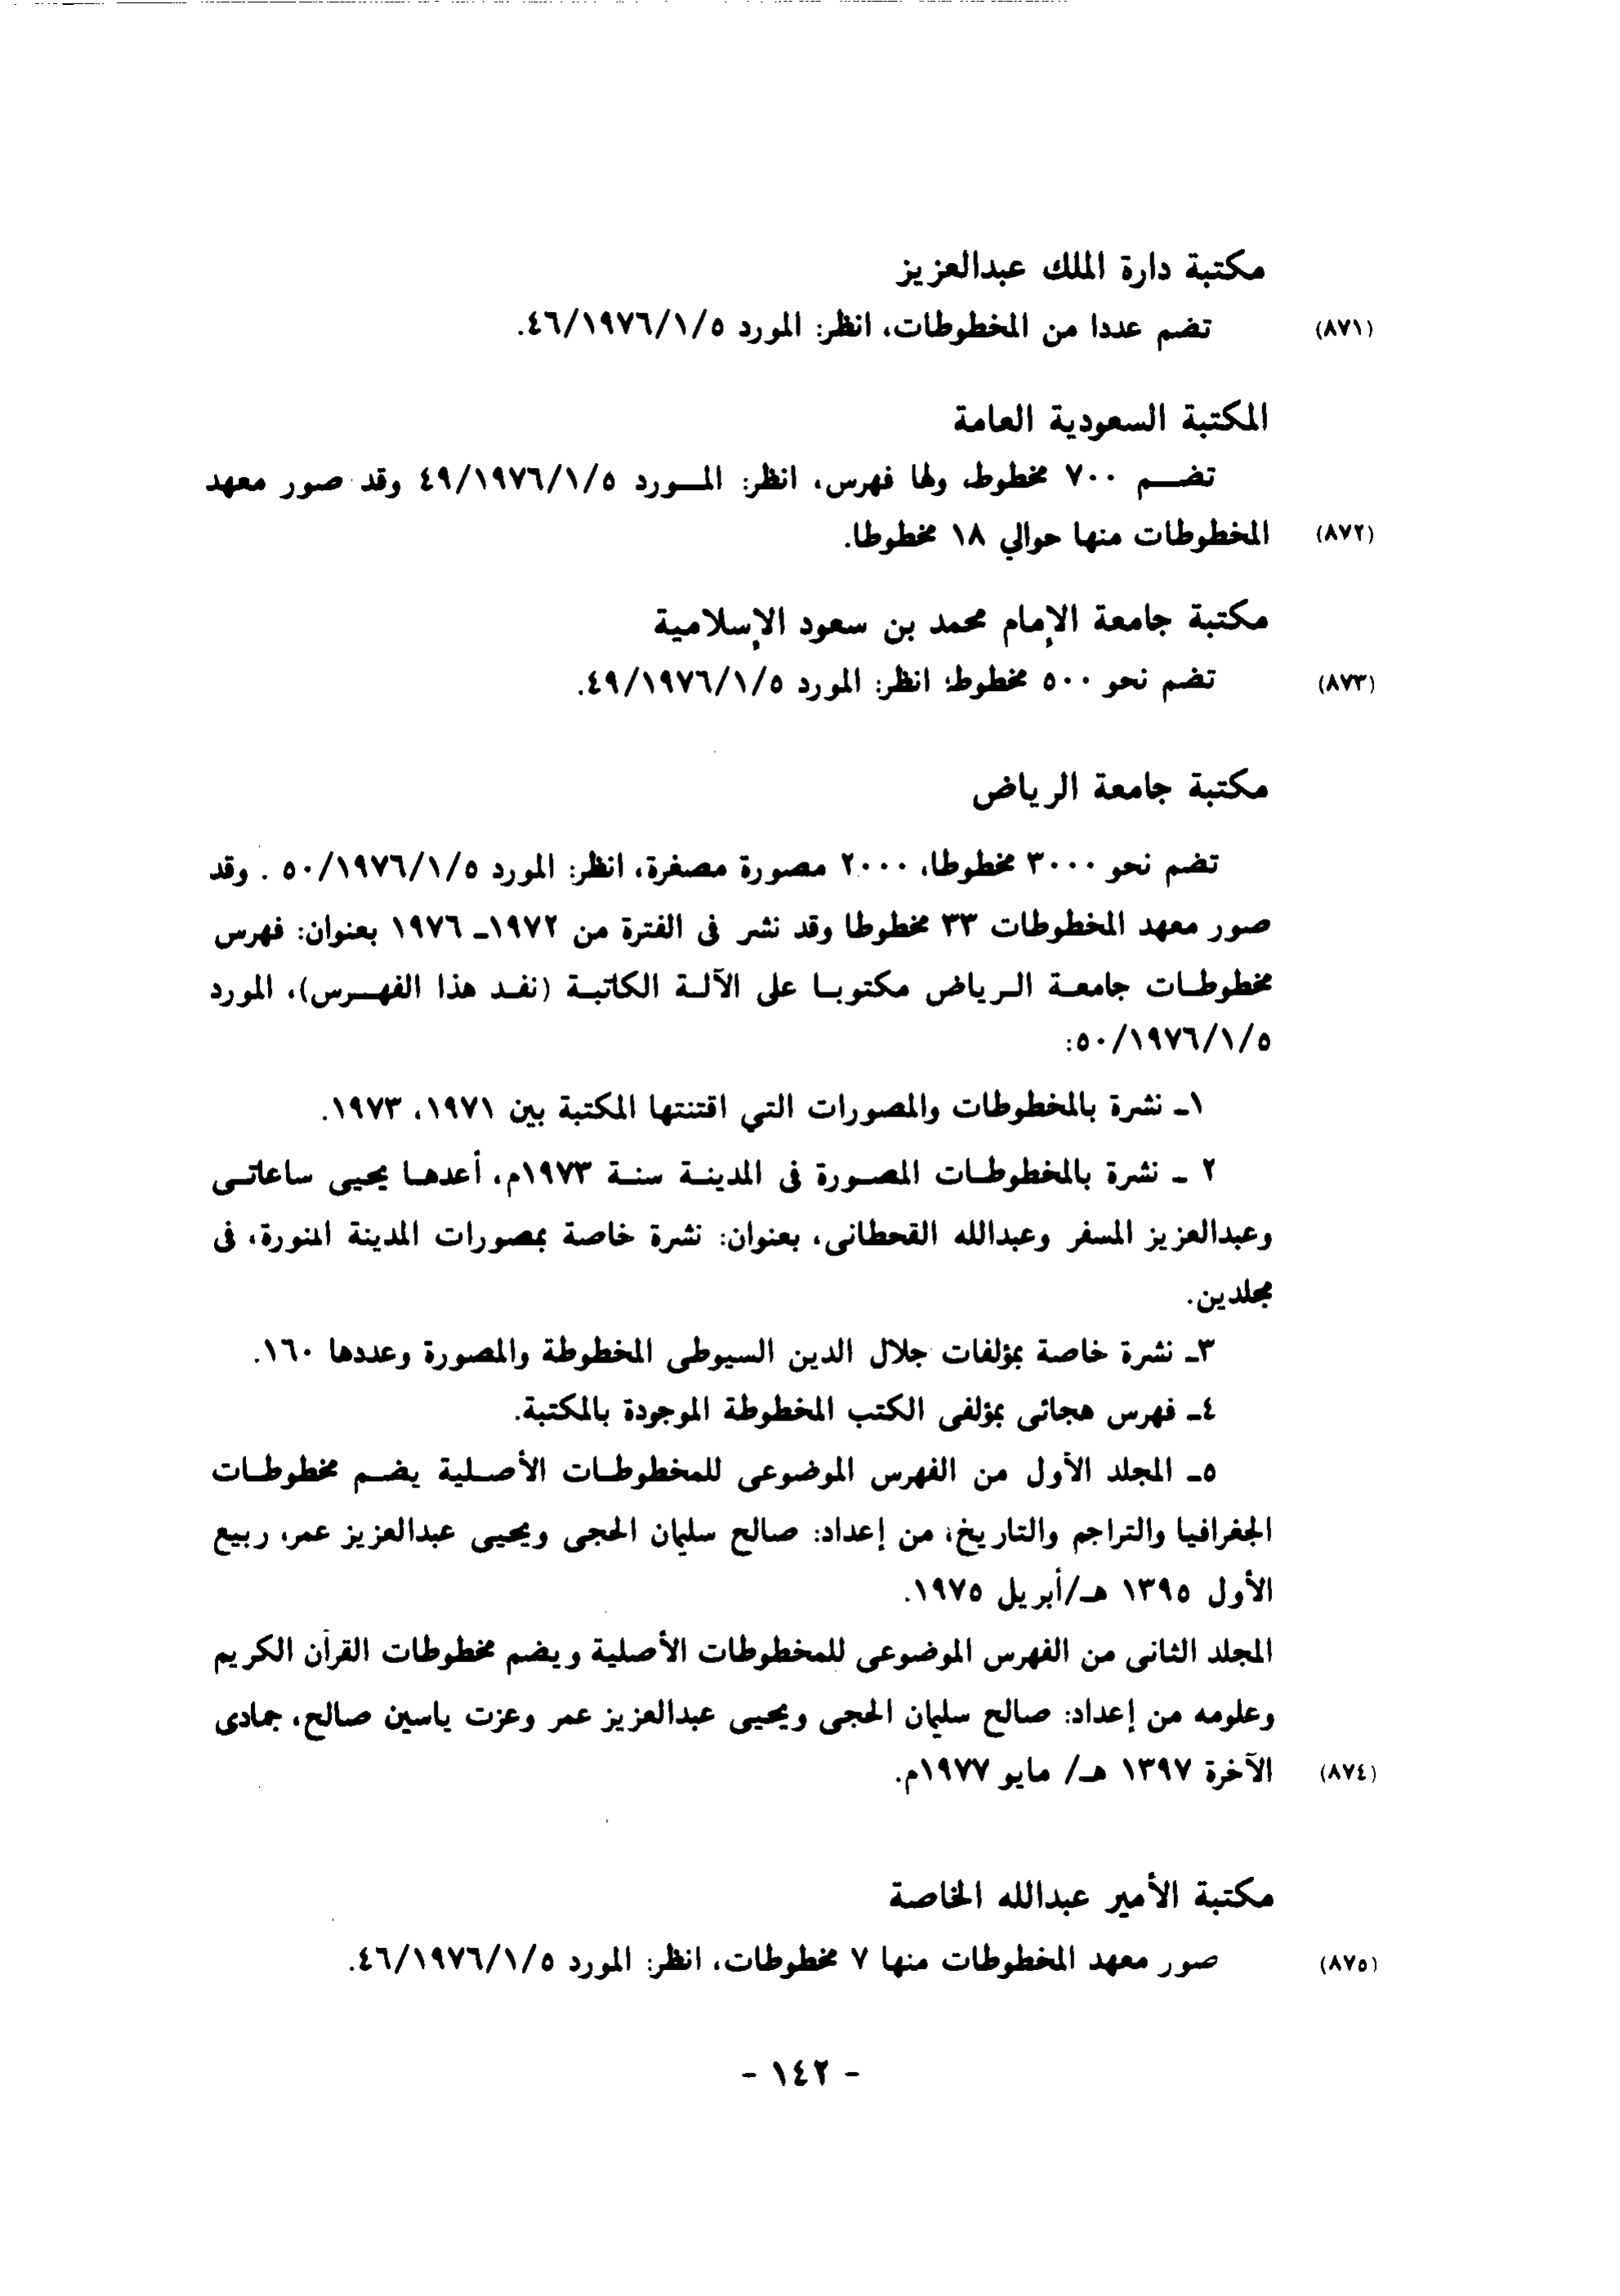 مكتبة دارة الملك عبدالعزيز
(٨٧١) تضم عددا من المخطوطات، انظر: المورد ٤٦/١٩٧٦/١/٥.
المكتبة السعودية العامة
تضـــم ٧٠٠ مخطوط، ولها فهرس، انظر: المـــورد ٤٩/١٩٧٦/١/٥ وقد صور معهد
(٨٧٢) المخطوطات منها حوالي ١٨ مخطوطا.
مكتبة جامعة الإمام محمد بن سعود الإسلامية
(٨٧٣) تضم نحو ٥٠٠ مخطوط؛ انظر: المورد ٤٩/١٩٧٦/١/٥.
مكتبة جامعة الرياض
تضم نحو ٣٠٠٠ مخطوطا، ٢٠٠٠ مصورة مصغرة، انظر: المورد ٥٠/١٩٧٦/١/٥ . وقد
صور معهد المخطوطات ٣٣ مخطوطا وقد نشر فى الفترة من ١٩٧٢ـ ١٩٧٦ بعنوان: فهرس
مخطوطـات جامعـة الـرياض مكتوبـا على الآلـة الكاتبـة (نفـد هذا الفهـرس)، المورد
٥٠/١٩٧٦/١/٥:
١ـ نشرة بالمخطوطات والمصورات التي اقتنتها المكتبة بين ١٩٧١، ١٩٧٣.
٢ ـ نشرة بالمخطوطـات المصـورة فى المدينـة سنـة ١٩٧٣م، أعدهـا يحيى ساعاتـى
وعبدالعزيز المسفر وعبدالله القحطانى، بعنوان: نشرة خاصة بمصورات المدينة المنورة، فى
مجلدين.
٣ـ نشرة خاصة بمؤلفات جلال الدين السيوطى المخطوطة والمصورة وعددها ١٦٠.
٤ـ فهرس هجائى بمؤلفى الكتب المخطوطة الموجودة بالمكتبة.
٥ـ المجلد الأول من الفهرس الموضوعى للمخطوطـات الأصـلية يضـم مخطوطـات
الجغرافيا والتراجم والتاريخ، من إعداد: صالح سليمان الحجى ويحيى عبدالعزيز عمر، ربيع
الأول ١٣٩٥ هـ/أبريل ١٩٧٥.
المجلد الثانى من الفهرس الموضوعى للمخطوطات الأصلية ويضم مخطوطات القرآن الكريم
وعلومه من إعداد: صالح سليمان الحجى ويحيى عبدالعزيز عمر وعزت ياسين صالح، جمادى
(٨٧٤) الآخرة ١٣٩٧ هـ/ مايو ١٩٧٧م.
مكتبة الأمير عبدالله الخاصة
(٨٧٥) صور معهد المخطوطات منها ٧ مخطوطات، انظر: المورد ٤٦/١٩٧٦/١/٥.
- ١٤٢ -